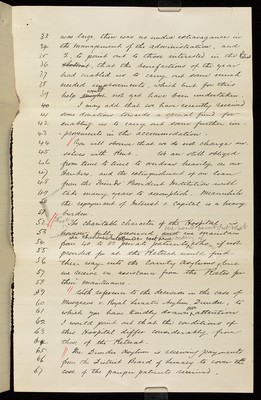 33 was large there was no undue extravagance in
34 the management of the administration, and
35 I, to point out to those interested in the
36 that the benefactions of the year
37 had enabled us to carry out some much
38 needed improvements, which but for this
39 help would not yet have been undertaken.
40 I may add that we have recently received
41 some donations towards a special fund for
42 enabling us to carry out some further im-
43 -provements in the accommodation.
44 You will observe that we do not charge our-
45 selves with Rent but are still obliged
46 from time to time to our
47 Bankers, and the extinguishment of our loan
48 from the Provident Institution will
49 take many years to accomplish. Meanwhile
50 the repayment of Interest & Capital is a heavy
51 burden.
52 The charitable character of the Hospital is
53 however fully preserved and we maintain
54 from 40 to 50 private patients who, if not
55 provided for at the Retreat would find
56 their way into the County Asylums, & for
57 we receive no assistance from the Rates for
58 their maintenance.
59 With reference to the decision in the case of
60 Musgrave v Royal Lunatic Asylum Dundee, to
61 which you have kindly drawn our attention
62 I would point out that the conditions of
63 this Hospital differ considerably from
64 those of the Retreat.
65 The Dundee Asylum is receiving payments
66 from the District Board of Lunacy to cover the
67 cost of the pauper patients received.